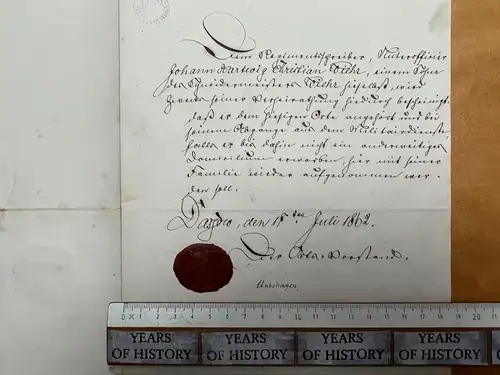 Dem Regimentsschreiber, Unterofficier
Johann Hartwig Christian Viehr, einem Sohn
des Schneidermeisters Viehr hieselbst, wird
Zwecks seiner Verheirathung hiedurch bescheinigt,
daß er dem hiesigen Orte angehört und bei
seinem Abgange aus dem Militairdienste,
falls er bis dahin nicht ein anderweitiges
Domicilium erworben, hier mit seiner
Familie wieder aufgenommen wer-
den soll.
den 18ten Juli 1862.
Der Orts-Vorstand.
0 1 2 3 4 5 6 7 8 9 10 11 12 13 14 15 16 17 18 19 20 21
YEARS OF HISTORY YEARS OF HISTORY YEARS OF HISTORY YEARS OF HISTORY